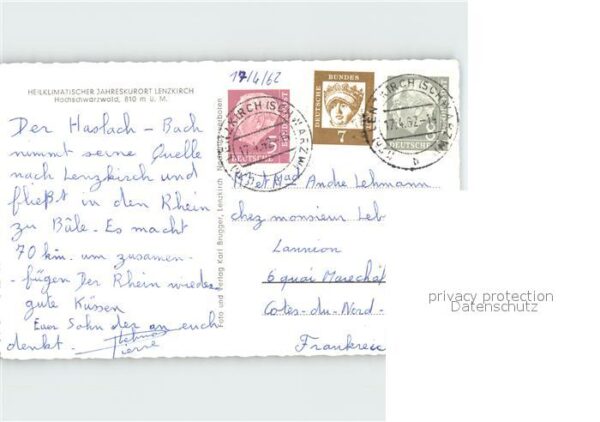 HEILKLIMATISCHER JAHRESKURORT LENZKIRCH
Hochschwarzwald, 810 m ü. M.
17/4/62
Der Haslach - Bach
nimmt seine Quelle
nach Lenzkirch und
fließt in den Rhein
zu Bâle. Es macht
70 km. um zusamen-
-fügen Der Rhein wieder
gute Küssen
Euer Sohn der an euch
denkt. Pierre
Foto und Verlag Karl Brugger, Lenzkirch
DEUTSCHE BUNDES
7
LENZKIRCH (SCHWARZW)
17.4.62
DEUTSCHE
LENZKIRCH (SCHW
17.4.62
DEUTSCHE
b
M et Mad Andre Lehmann
chez monsieur Leb
Lannion
6 quai Marechal
Cotes-du-Nord-
Frankreic
privacy protection
Datenschutz